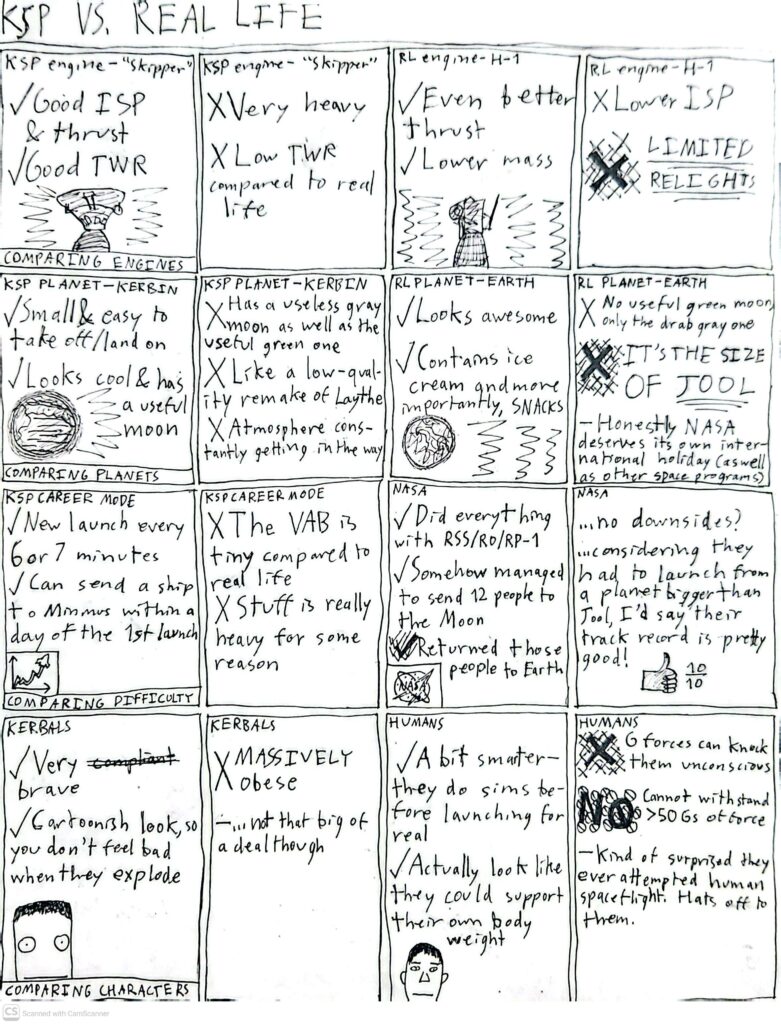 KSP VS. REAL LIFE
KSP engine-"Skipper"
✓Good ISP
& thrust
✓Good TWR
COMPARING ENGINES
KSP engine-"Skipper"
X Very heavy
X Low TWR
compared to real
life
RL engine-H-1
✓Even better
thrust
✓Lower mass
RL engine-H-1
X Lower ISP
X LIMITED
RELIGHTS
KSP PLANET-KERBIN
✓Small & easy to
take off/land on
✓Looks cool & has
a useful
moon
COMPARING PLANETS
KSP PLANET-KERBIN
X Has a useless gray
moon as well as the
useful green one
X Like a low-qual-
ity remake of Laythe
X Atmosphere cons-
tantly getting in the way
RL PLANET-EARTH
✓Looks awesome
✓Contains ice
cream and more
importantly, SNACKS
RL PLANET-EARTH
X No useful green moon,
only the drab gray one
X IT'S THE SIZE
OF JOOL
-Honestly NASA
deserves its own inter-
national holiday (aswell
as other space programs)
KSP CAREER MODE
✓New launch every
6 or 7 minutes
✓Can send a ship
to Minmus within a
day of the 1st launch
COMPARING DIFFICULTY
KSP CAREER MODE
X The VAB is
tiny compared to
real life
X Stuff is really
heavy for some
reason
NASA
✓Did everything
with RSS/RO/RP-1
✓Somehow managed
to send 12 people to
the Moon
✓Returned those
people to Earth
NASA
NASA
...no downsides?
...considering they
had to launch from
a planet bigger than
Jool, I'd say their
track record is pretty
good!
10
10
KERBALS
✓Very compliant
brave
✓Cartoonish look, so
you don't feel bad
when they explode
COMPARING CHARACTERS
KERBALS
X MASSIVELY
obese
-...not that big of
a deal though
HUMANS
✓A bit smarter-
they do sims be-
fore launching for
real
✓Actually look like
they could support
their own body
weight
HUMANS
X G forces can knock
them unconscious
NO Cannot withstand
>50 Gs of force
-Kind of surprised they
ever attempted human
spaceflight. Hats off to
them.
CS Scanned with CamScanner